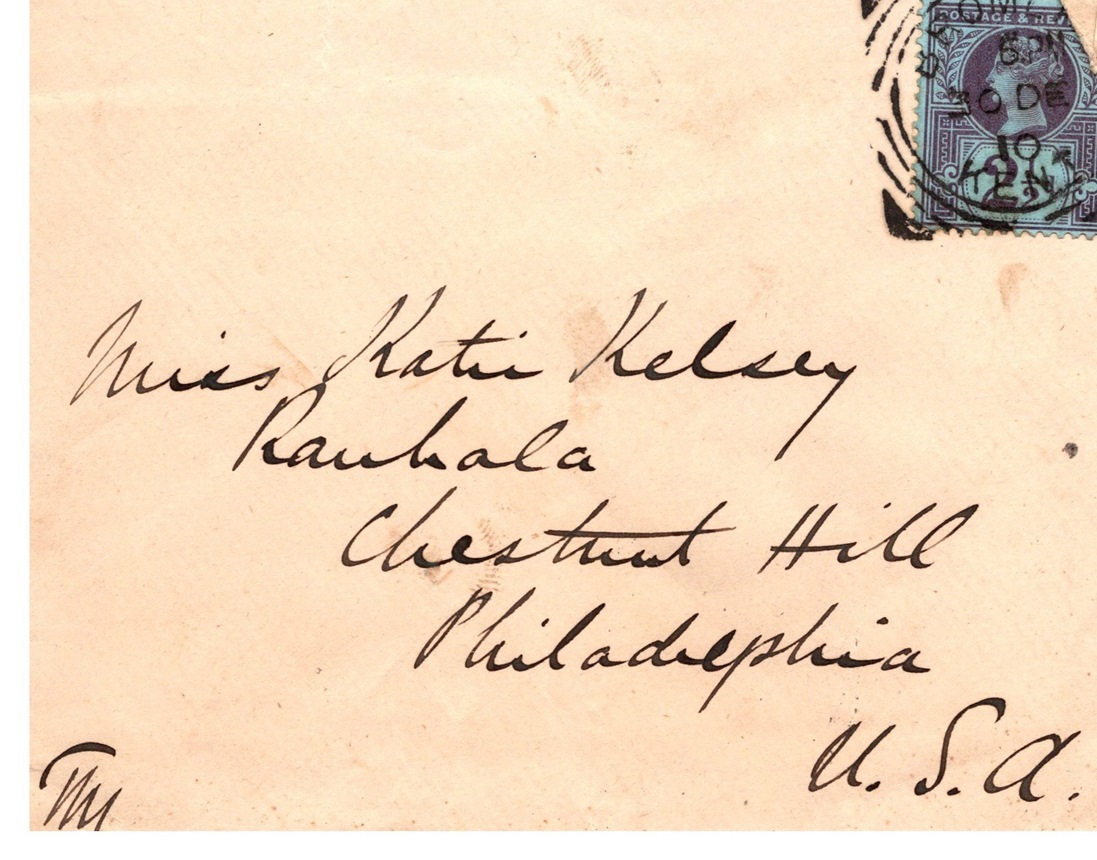 POSTAGE & REV
6 PM
30 DE
10
KENT
2½
Miss Katie Kelsey
Rauhala
Chestnut Hill
Philadelphia
U. S. A.